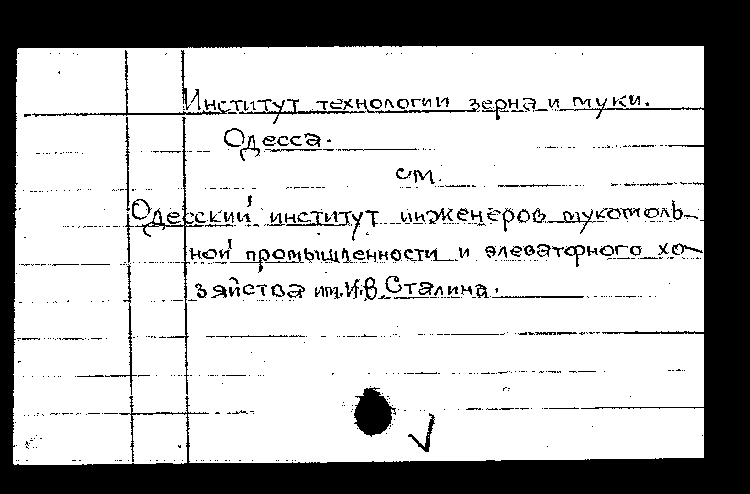 Институт технологии зерна и муки.
Одесса.
см.
Одесский институт инженеров мукомоль-
ной промышленности и элеваторного хо-
зяйства им. И.В. Сталина.